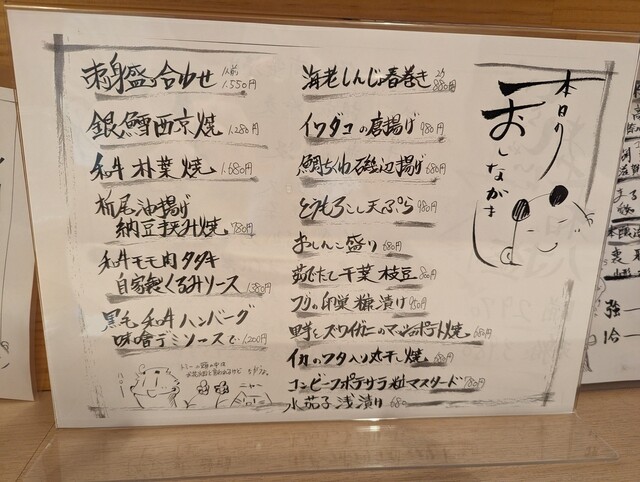 本日の
おしながき
刺身盛り合わせ 1人前 1.550円
銀鱈西京焼 1.280円
和牛朴葉焼 1.680円
栃尾油揚げ
納豆挟み焼 780円
和牛モモ肉タタキ
自家製くるみソース 1.380円
黒毛和牛ハンバーグ
味噌デミソースで 1.200円
海老しんじょ春巻き 2ケ 880円
イイダコの唐揚げ 980円
鯛ちくわ磯辺揚げ 680円
とうもろこし天ぷら 980円
おしんこ盛り 680円
茹でたて千葉枝豆 800円
ブリの卵巣糠漬け 950円
ズワイガニのマッシュポテト焼 680円
イカのワタ入り丸干し焼 680円
コンビーフポテサラ 粒マスタード 780円
水茄子浅漬け 680